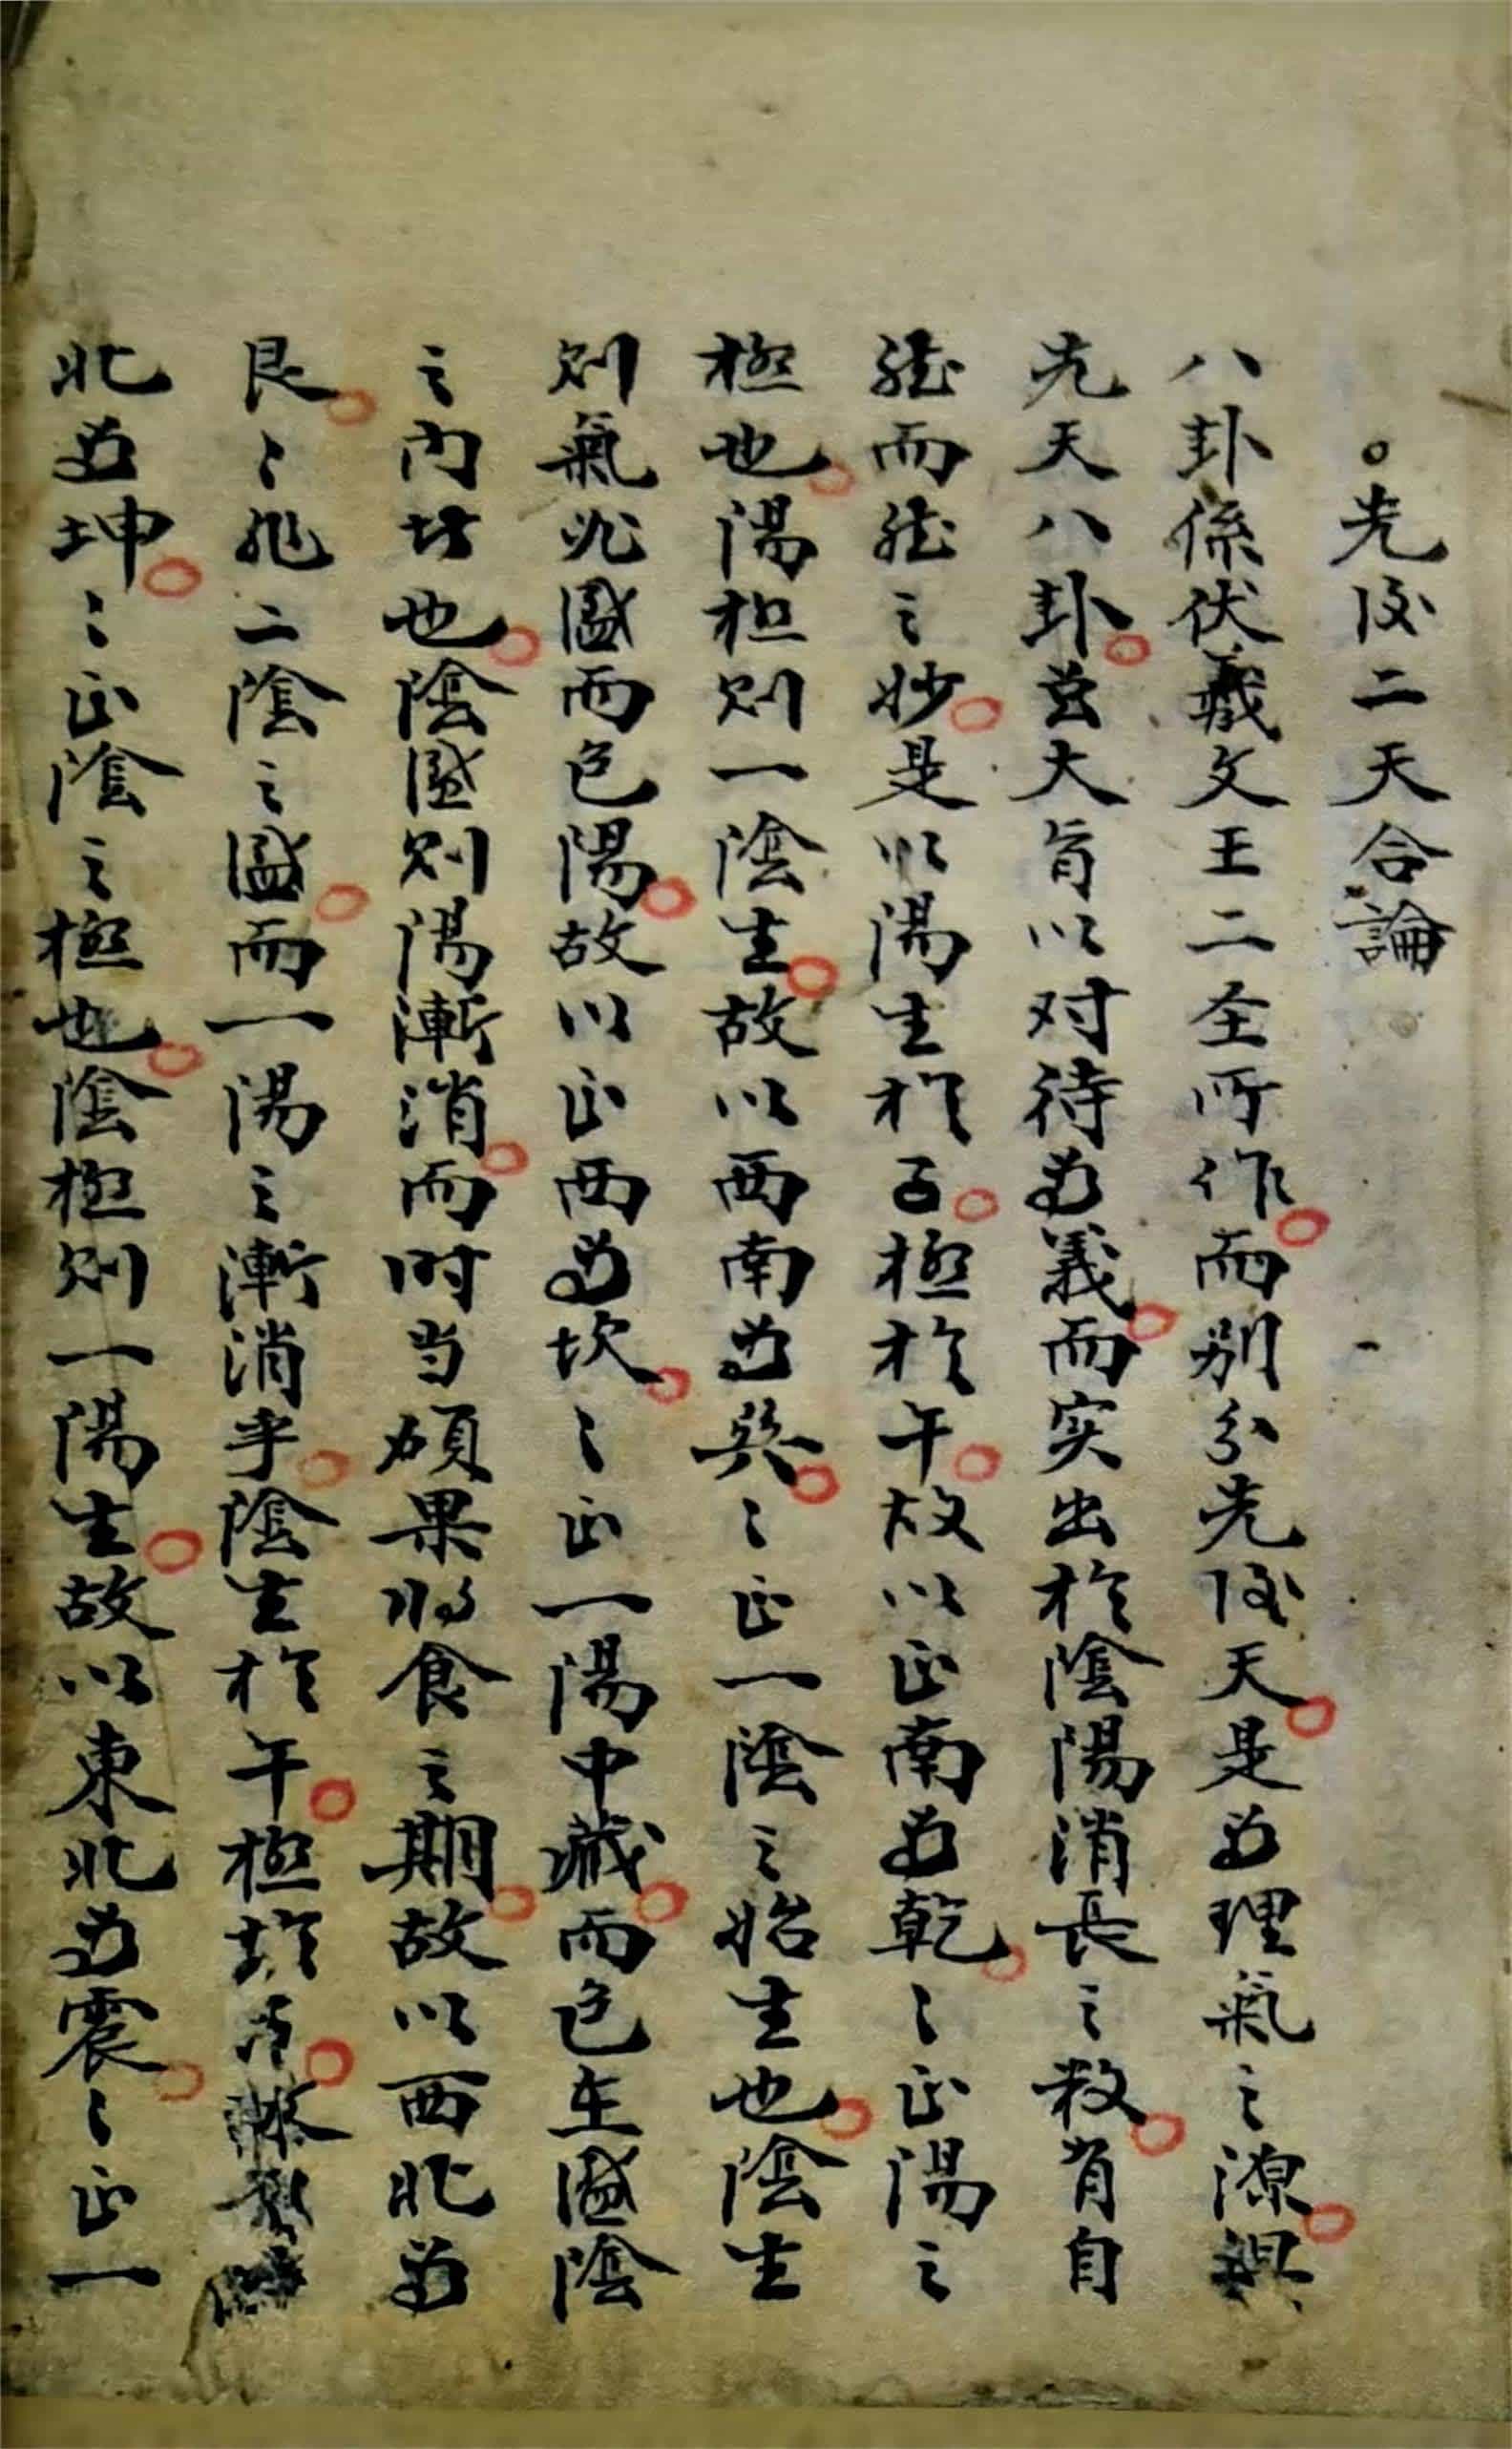 。先後二天合論
八卦係伏羲文王二圣所作而别分先後天是為理氣之源
先天八卦其大旨以対待為義而实出於陰陽消長之数皆自
然而然之妙是以陽生於子極於午故以正南為乾〻正陽之
極也陽極则一陰生故以西南為巽〻正一陰之始生也陰生
则氣必盛而包陽故以正西為坎〻正一陽中藏而包在盛陰
之内故也陰盛则陽漸消而时当碩果将食之期故以西北為
艮〻兆二陰之盛而一陽之漸消乎陰生於午極於
北為坤〻正陰之極也陰極则一陽生故以東北為震〻正一